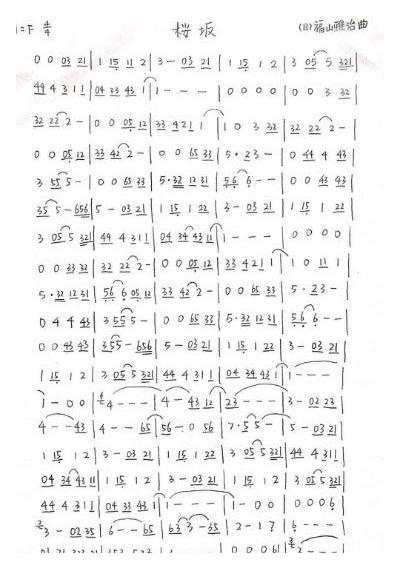 1=F 4/4 桜坂 (日)福山雅治曲
0 0 03 21 | 1 15 11 2 | 3 - 03 21 | 1 15 1 2 | 3 05 5 321 |
44 4 3 1 1 | 04 33 43 1 | 1 - - - | 0 0 0 0 | 0 0 3 32 |
32 22 2 - | 0 0 05 12 | 33 42 1 1 | 1 0 3 32 | 32 22 2 - |
0 0 05 12 | 33 42 2 - | 0 0 65 33 | 5 · 23 - | 0 44 4 43 |
3 55 5 - | 0 0 65 33 | 5·32 12 31 | 56 6 - - | 0 0 43 43 |
35 5 - 656 | 5 - 03 21 | 1 15 1 22 | 3 - 03 21 | 1 15 1 22 |
3 05 5 321 | 44 4 31 1 | 04 34 43 11 | 1 - - - | 0 0 0 0 |
0 0 33 32 | 32 22 2 - | 0 0 05 12 | 33 42 1 1 | 1 0 11 1 |
5·32 12 31 | 56 6 05 12 | 33 42 2 - | 0 0 65 33 | 5 · 23 - |
0 4 4 43 | 3 55 5 - | 0 0 65 33 | 5·32 12 31 | 56 6 - - |
0 0 43 43 | 3 55 - 656 | 5 - 03 21 | 1 15 1 22 | 3 - 03 21 |
1 15 1 2 | 3 05 5 321 | 44 4 31 1 | 04 34 43 1 | 1 - - - |
1 - 0 0 | 4 - - - | 4 - 43 12 | 23 - - - | 3 - 02 23 |
4 - - 43 | 4 - - 65 | 56 - 0 56 | 7 · 5 5 - | 5 - 03 21 |
1 15 1 2 | 3 - 03 21 | 1 15 1 22 | 3 05 5 321 | 44 4 31 1 |
04 34 43 11 | 1 15 1 2 | 3 - 03 21 | 1 15 1 2 | 3 05 5 321 |
44 4 31 1 | 04 33 43 1 | 1 - - - | 1 - 0 0 | 0 0 0 6 |
3 - 02 35 | 6 - - 65 | 63 3 - 35 | 2 - 1 7 | 6 - - - |